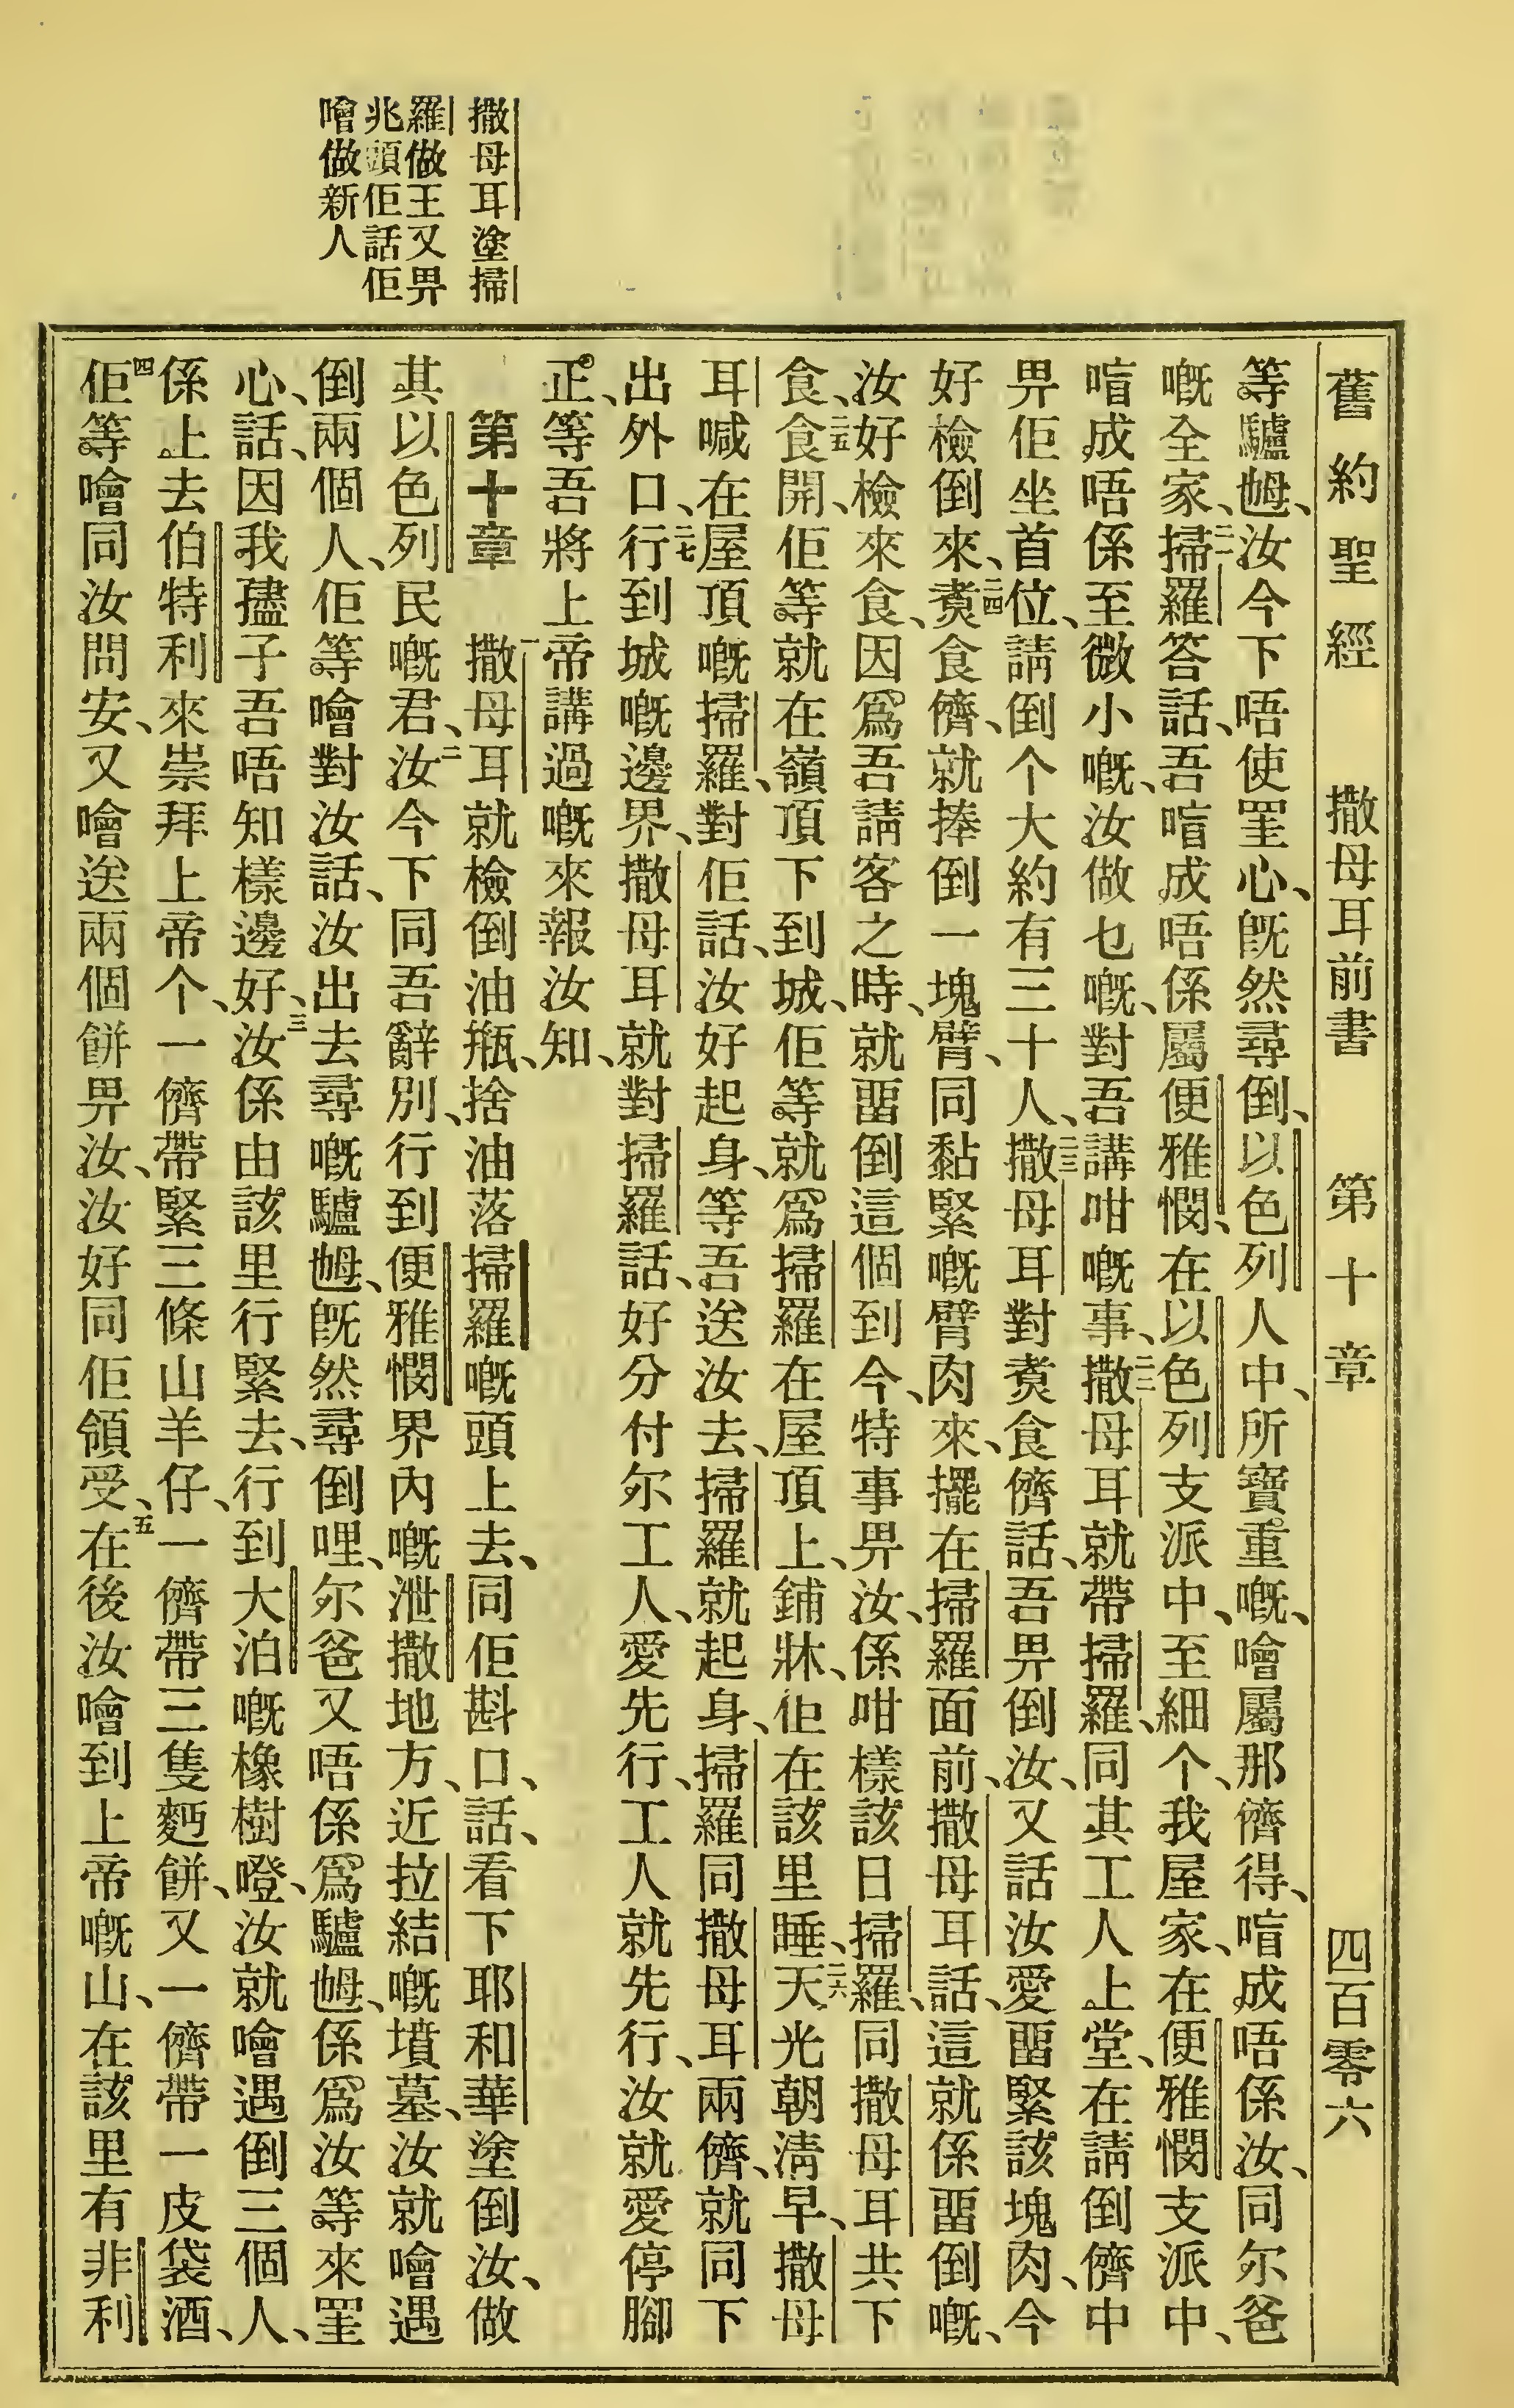 舊約聖經　撒母耳前書　第十章　四百零六
等驢𡜵、汝今下唔使罣心、旣然尋倒、以色列人中、所寶重嘅、噲屬那儕得、唁成唔係汝、同尔爸
嘅全家、二一掃羅答話、吾唁成唔係屬便雅憫、在以色列支派中、至細个、我屋家、在便雅憫支派中、
唁成唔係至微小嘅、汝做乜嘅、對吾講咁嘅事、二二撒母耳就帶掃羅、同其工人上堂、在請倒儕中
畀佢坐首位、請倒个大約有三十人、二三撒母耳對煑食儕話、吾畀倒汝、又話汝愛畱緊該塊肉、今
好檢倒來、二四煑食儕、就捧倒一塊臂、同黏緊嘅臂肉來、擺在掃羅面前、撒母耳話、這就係畱倒嘅、
汝好檢來食、因爲吾請客之時、就畱倒這個到今、特事畀汝、係咁樣該日掃羅、同撒母耳共下
食、二五食開、佢等就在嶺頂下到城、佢等就爲掃羅在屋頂上、鋪牀、佢在該里睡、二六天光朝淸早、撒母
耳喊在屋頂嘅掃羅、對佢話、汝好起身、等吾送汝去、掃羅就起身、掃羅同撒母耳兩儕、就同下
出外口、二七行到城嘅邊界、撒母耳就對掃羅話、好分付尔工人、愛先行、工人就先行、汝就愛停腳
正、等吾將上帝講過嘅來報汝知、
撒母耳塗掃
羅做王又畀
兆頭佢話佢
噲做新人
第十章　一撒母耳就檢倒油瓶、捨油落掃羅嘅頭上去、同佢斟口、話、看下耶和華塗倒汝、做
其以色列民嘅君、二汝今下同吾辭別、行到便雅憫界內嘅泄撒地方、近拉結嘅墳墓、汝就噲遇
倒兩個人、佢等噲對汝話、汝出去尋嘅驢𡜵、旣然尋倒哩、尔爸又唔係爲驢𡜵、係爲汝等來罣
心、話、因我孻子吾唔知樣邊好、三汝係由該里行緊去、行到大泊嘅橡樹嶝、汝就噲遇倒三個人、
係上去伯特利來崇拜上帝个、一儕帶緊三條山羊仔、一儕帶三隻麪餠、又一儕帶一皮袋酒、
四佢等噲同汝問安、又噲送兩個餠畀汝、汝好同佢領受、五在後汝噲到上帝嘅山、在該里有非利